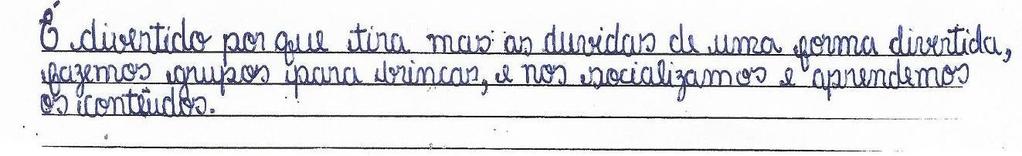 É divertido por que tira mas as duvidas de uma forma divertida,
fazemos grupos para brincar, e nos socializamos e aprendemos
os contêudos.